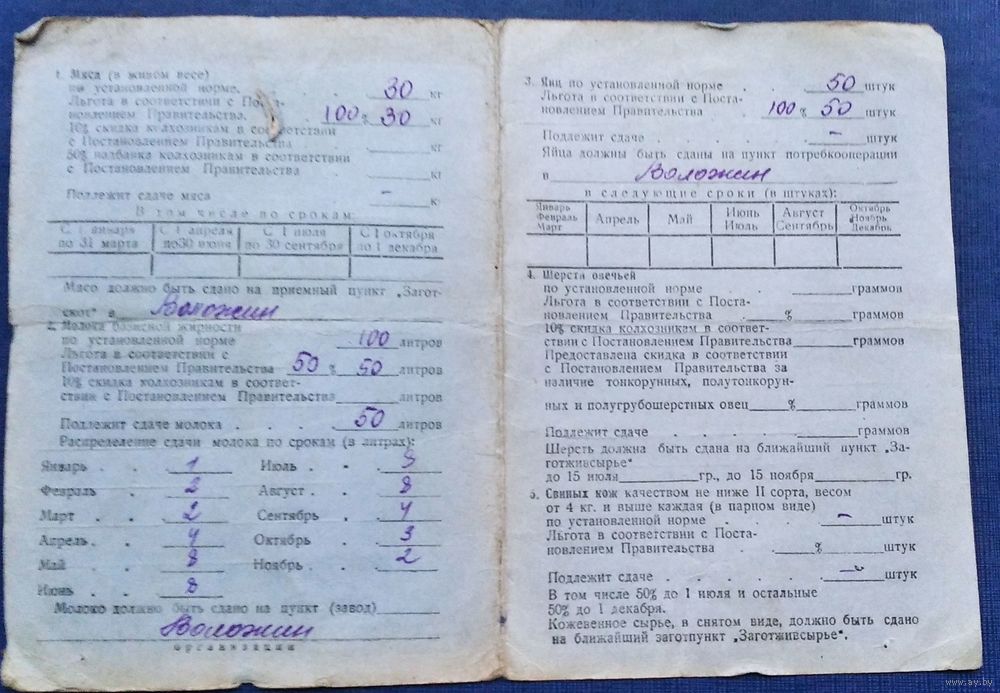 1. Мяса (в живом весе)
по установленной норме. . 30 кг
Льгота в соответствии с Поста-
новлением Правительства. 100 % 30 кг
10% скидка колхозникам в соответствии
с Постановлением Правительства . кг
50% надбавка колхозникам в соответствии
с Постановлением Правительства кг
Подлежит сдаче мяса – к
В том числе по срокам:
С 1 января по 31 марта | С 1 апреля по 30 июня | С 1 июля по 30 сентября | С 1 октября по 1 декабря
Мясо должно быть сдано на приемный пункт „Загот-
скот" в Воложин
2. Молока базисной жирности
по установленной норме 100 литров
Льгота в соответствии с
Постановлением Правительства 50 % 50 литров
10% скидка колхозникам в соответ-
ствии с Постановлением Правительства литров
Подлежит сдаче молока . . . . 50 литров
Распределение сдачи молока по срокам (в литрах):
Январь . . 1 Июль . . 9
Февраль . 2 Август . . 8
Март . . 2 Сентябрь . 4
Апрель . . 4 Октябрь . 3
Май . . 8 Ноябрь . . 2
Июнь . 8
Молоко должно быть сдано на пункт (завод)
Воложин
организации
3. Яиц по установленной норме . . 50 штук
Льгота в соответствии с Поста-
новлением Правительства 100 % 50 штук
Подлежит сдаче . . . . . – штук
Яйца должны быть сданы на пункт потребкооперации
в Воложин
в следующие сроки (в штуках):
Январь Февраль Март | Апрель | Май | Июнь Июль | Август Сентябрь | Октябрь Ноябрь Декабрь
4. Шерсти овечьей
по установленной норме . . граммов
Льгота в соответствии с Поста-
новлением Правительства . % граммов
10% скидка колхозникам в соответ-
ствии с Постановлением Правительства граммов
Предоставлена скидка в соответствии
с Постановлением Правительства за
наличие тонкорунных, полутонкорун-
ных и полугрубошерстных овец % граммов
Подлежит сдаче . . . . . граммов
Шерсть должна быть сдана на ближайший пункт „За-
готживсырье"
до 15 июля гр., до 15 ноября гр.
5. Свиных кож качеством не ниже II сорта, весом
от 4 кг. и выше каждая (в парном виде)
по установленной норме . . . – штук
Льгота в соответствии с Поста-
новлением Правительства . % штук
Подлежит сдаче . . . . . – штук
В том числе 50% до 1 июля и остальные
50% до 1 декабря.
Кожевенное сырье, в снятом виде, должно быть сдано
на ближайший заготпункт „Заготживсырье".
www.ay.by